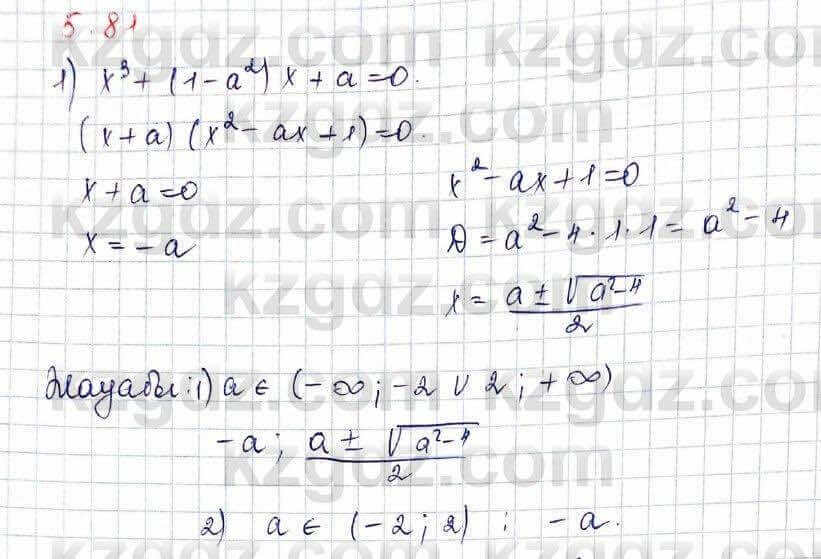 5.81
1) x³ + (1 - a²) x + a = 0.
(x + a) (x² - ax + 1) = 0.
x + a = 0
x = -a
x² - ax + 1 = 0
D = a² - 4 · 1 · 1 = a² - 4
x = (a ± √(a² - 4))/2
Жауабы: 1) a ∈ (-∞; -2 ∪ 2; +∞)
-a; (a ± √(a² - 4))/2
2) a ∈ (-2; 2) : -a.
kzgdz.com
kzgdz.com
kzgdz.com
kzgdz.com
kzgdz.com
kzgdz.com
kzgdz.com
kzgdz.com